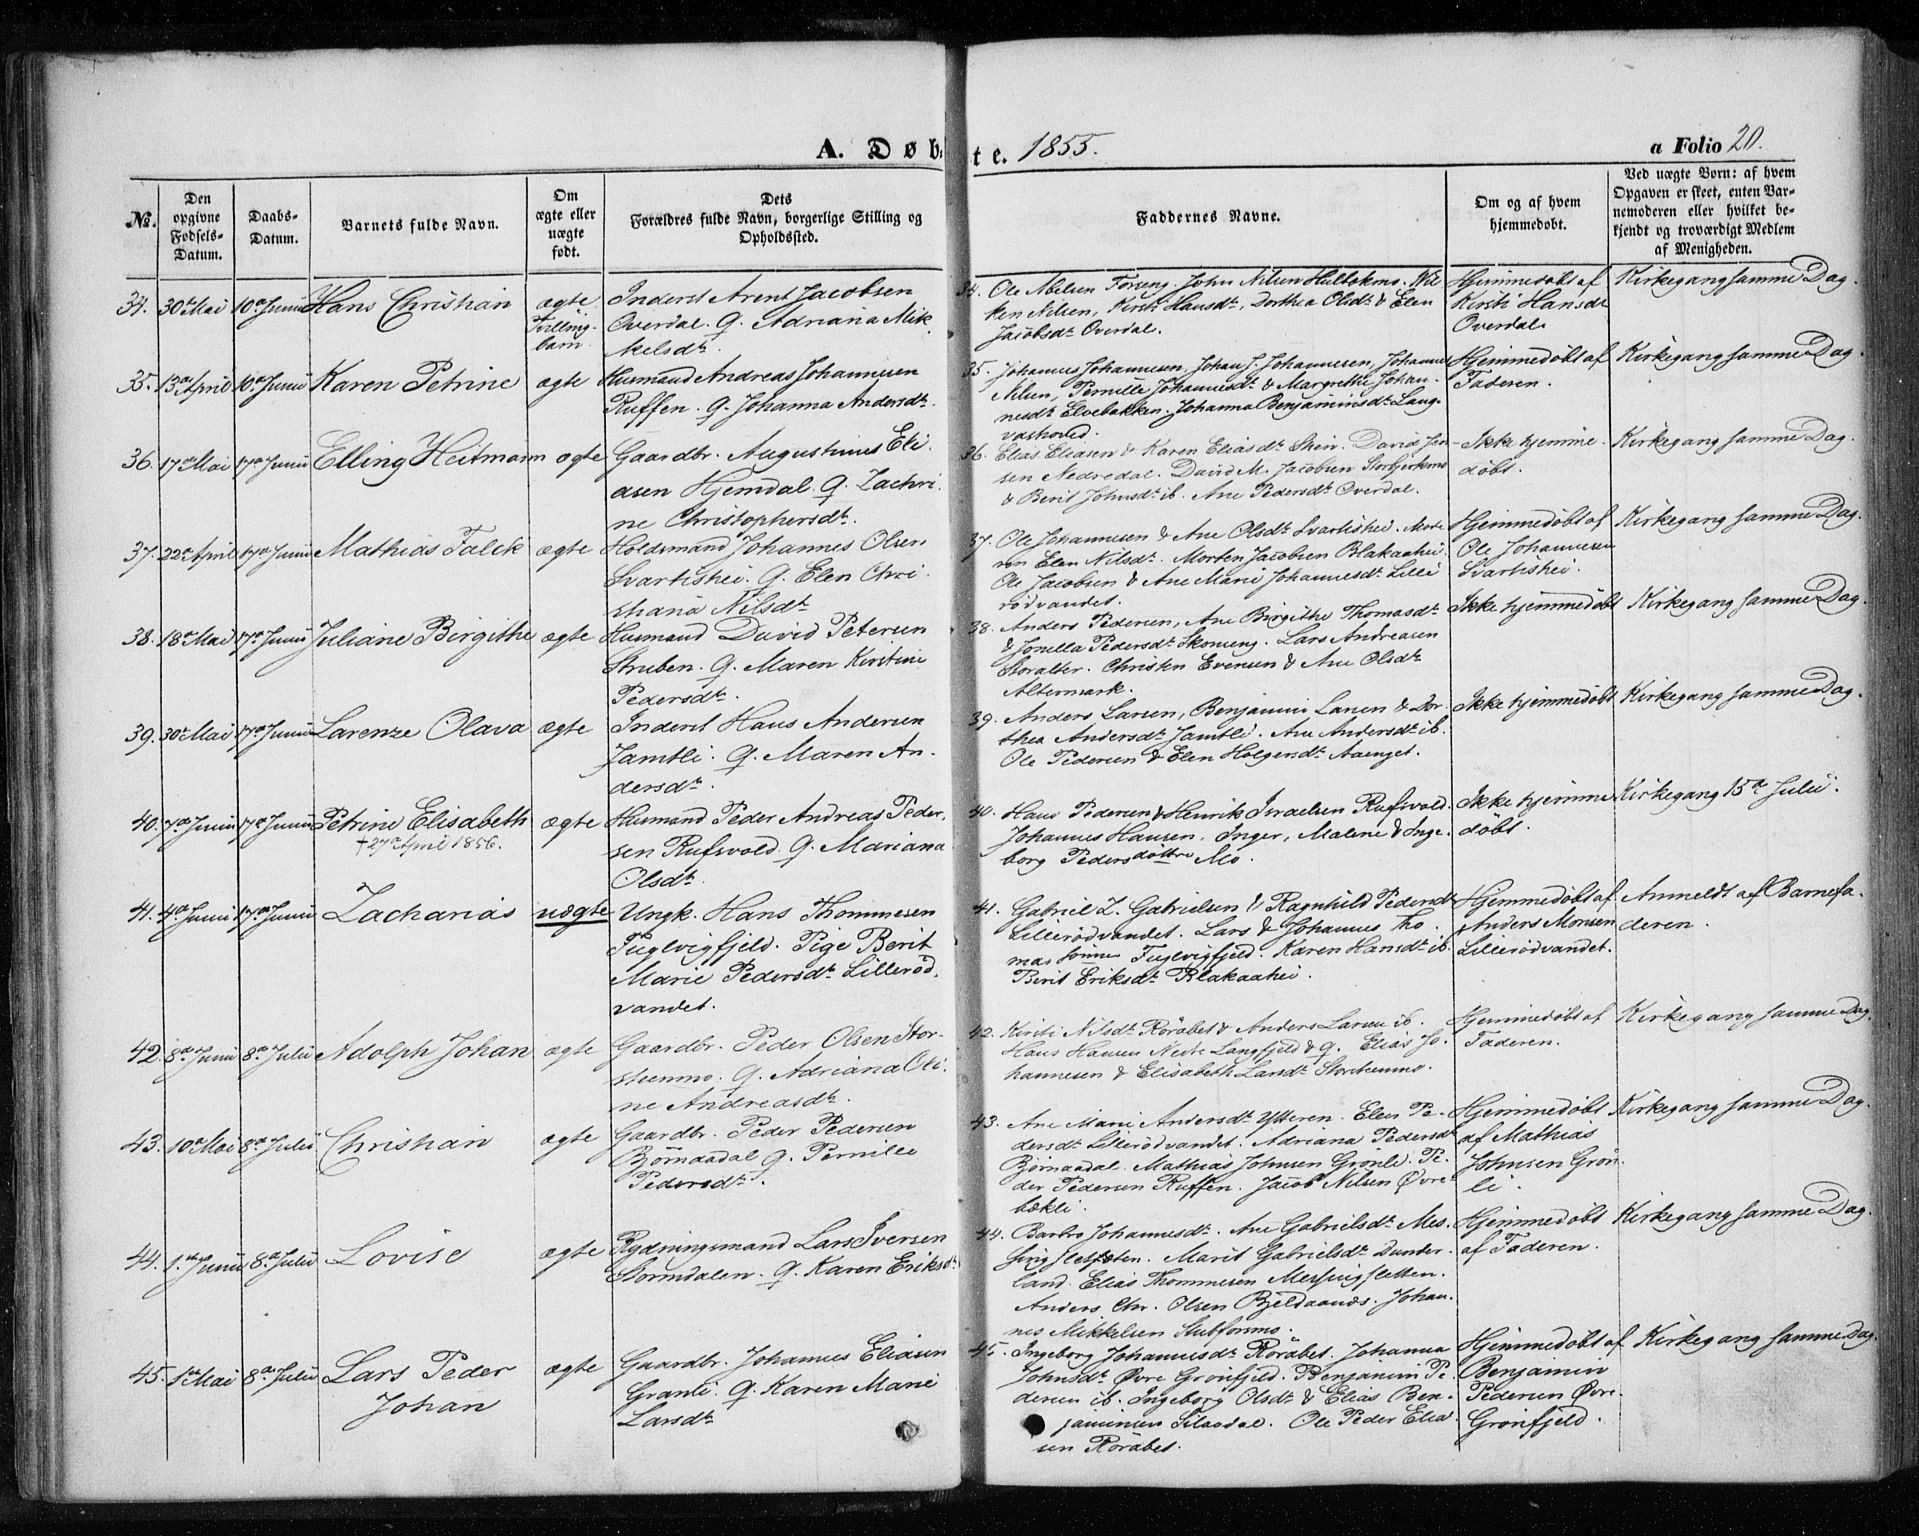 A. Døbte. 1855.
a Folio 20.
No.
Den opgivne Fødsels-Datum.
Daabs-Datum.
Barnets fulde Navn.
Om ægte eller uægte født.
Dets Forældres fulde Navn, borgerlige Stilling og Opholdssted.
Faddernes Navne.
Om og af hvem hjemmedøbt.
Ved uægte Børn: af hvem Opgaven er skeet, enten Barnemoderen eller hvilket bekjendt og troværdigt Medlem af Menigheden.
34. 30te Mai 10de Junii Hans Christian ægte Tvillingbarn
Inderst Arent Jacobsen
Overdal. Q. Adriana Mik
kelsdtr
34. Ole Nielsen Forseng. John Nilsen
ken Nilsen, Kirsti Hansdtr, Dorthea Olsdtr & Elen
Jacobsdtr Overdal.
Hjemmedøbt af
Kirsti Hansdtr
Overdal
Kirkegang samme Dag.
35. 13de April 10de Junii Karen Petrine ægte
Husmand Andreas Johannesen
Ruffen. Q. Johanna Andersdtr.
35. Johannes Johannesen, Johan J. Johannesen, Johannes
Nilsen, Pernille Johannesdtr & Margrethe Johan-
nesdtr Elvebakken. Johanna Benjaminsdtr Lang-
vashoved.
Hjemmedøbt af
Faderen.
Kirkegang samme Dag.
36. 17de Mai 17de Junii Elling Heitmann ægte
Gaardbr. Augustinus Eli
asen Hjemdal. Q. Zachri
ne Christophersdtr.
36. Elias Eliasen & Karen Eliasdtr Stein. David Jen
sen Nedredal. David M. Jacobsen Storbjerkmo
& Berit Johnsdtr ib. Ane Pedersdtr Overdal.
Ikke hjemme
døbt.
Kirkegang samme Dag.
37. 22de April 17de Junii Mathias Falck ægte
Holdsmand Johannes Olsen
Svartishei. Q. Elen Chri
stiana Nilsdtr
37. Ole Johannesen & Ane Olsdtr Svartishei. Mode
ren Elen Nilsdtr. Morten Jacobsen Blakaahei.
Ole Jacobsen & Ane Marie Johannesdtr Lille
rødvandet.
Hjemmedøbt af
Ole Johannesen
Svartishei.
Kirkegang samme Dag.
38. 18de Mai 17de Junii Juliane Birgithe ægte
Husmand David Petersen
Struben. Q. Maren Kirstine
Pedersdtr.
38. Anders Pedersen, Ane Birgithe Thomasdtr
& Jonella Pedersdtr Skonseng. Lars Andreasen
Storalter. Christen Evensen & Ane Olsdtr
Altermark.
Ikke hjemmedøbt
Kirkegang samme Dag.
39. 30te Mai 17de Junii Larenze Olava ægte
Inderst Hans Andersen
Jamtli. Q. Maren An-
dersdtr.
39. Anders Larsen, Benjamin Larsen & Dor
thea Andersdtr Jamtli. Ane Andersdtr ib.
Ole Pedersen & Elen Holgersdtr Aaenget.
Ikke hjemmedøbt
Kirkegang samme Dag.
40. 7de Junii 17de Junii Petrine Elisabeth ægte
† 27de April 1856.
Husmand Peder Andreas Peder-
sen Rufsvold. Q. Mariana
Olsdtr.
40. Hans Pedersen & Henrik Israelsen Rufsvold.
Johannes Hansen, Inger, Malene & Inge
borg Pedersdøttre Mo.
Ikke hjemme
døbt.
Kirkegang 15de Julii.
41. 4de Junii 17de Junii Zacharias uægte
Ungk. Hans Thommesen
Fuglvigfjeld. Pige Berit
Marie Pedersdtr Lillerød-
vandet.
41. Gabriel Z. Gabrielsen & Ragnhild Pedersdtr
Lillerødvandet. Lars & Johannes Tho
mas Sønner Fuglvigfjeld. Karen Hansdtr ib.
Berit Eriksdtr Blakaahei.
Hjemmedøbt af
Anders Monsen
Lillerødvandet.
Anmeldt af Barnefa
deren.
42. 8de Junii 8de Julii Adolph Johan ægte
Gaardbr. Peder Olsen Stor-
stenmo. Q. Adriana Oli
ne Andreasdtr.
42. Kirsti Nilsdtr Rørabet & Anders Larsen ib.
Hans Hansen Nedre Langfjeld & Q. Elias Jo
hannesen & Elisabeth Larsdtr Storstenmo.
Hjemmedøbt af
Faderen.
Kirkegang samme Dag.
43. 10de Mai 8de Julii Christian ægte
Gaardbr. Peder Pedersen
Bjørnaadal Q. Pernille
Pedersdtr.
43. Ane Marie Andersdtr Ytteren. Elen Pe-
dersdtr Lillerødvandet. Adriana Pedersdtr
Bjørnaadal. Mathias Johnsen Grønli. Pe
der Pedersen Ruffen. Jacob Nilsen Øvre
bækli.
Hjemmedøbt
af Mathias
Johnsen Grøn
li.
Kirkegang samme Dag.
44. 1ste Junii 8de Julii Lovise ægte
Rydningsmand Lars Iversen
Stormdalen. Q. Karen Eriksdtr
44. Barbro Johannesdtr. Ane Gabrielsdtr Mes
singsletten. Marit Gabrielsdtr Dunder
land. Elias Thommesen Messingsletten.
Anders Chr. Olsen Bjeldaanæs. Johan
nes Mikkelsen Stubformo.
Hjemmedøbt
af Faderen.
Kirkegang samme Dag.
45. 1ste Mai 8de Julii Lars Peder
Johan ægte
Gaardbr. Johannes Eliasen
Granli. Q. Karen Marie
Larsdtr
45. Ingeborg Johannesdtr Rørabet. Johanna
Johnsdtr Øvre Grønfjeld. Benjamin Pe
dersen ib. Ingeborg Olsdtr & Elias Ben-
jaminsen. Ole Peder Elia
sen Rørabet.
Hjemmedøbt af
Benjamin
Pedersen Øvre
Grønfjeld.
Kirkegang samme Dag.